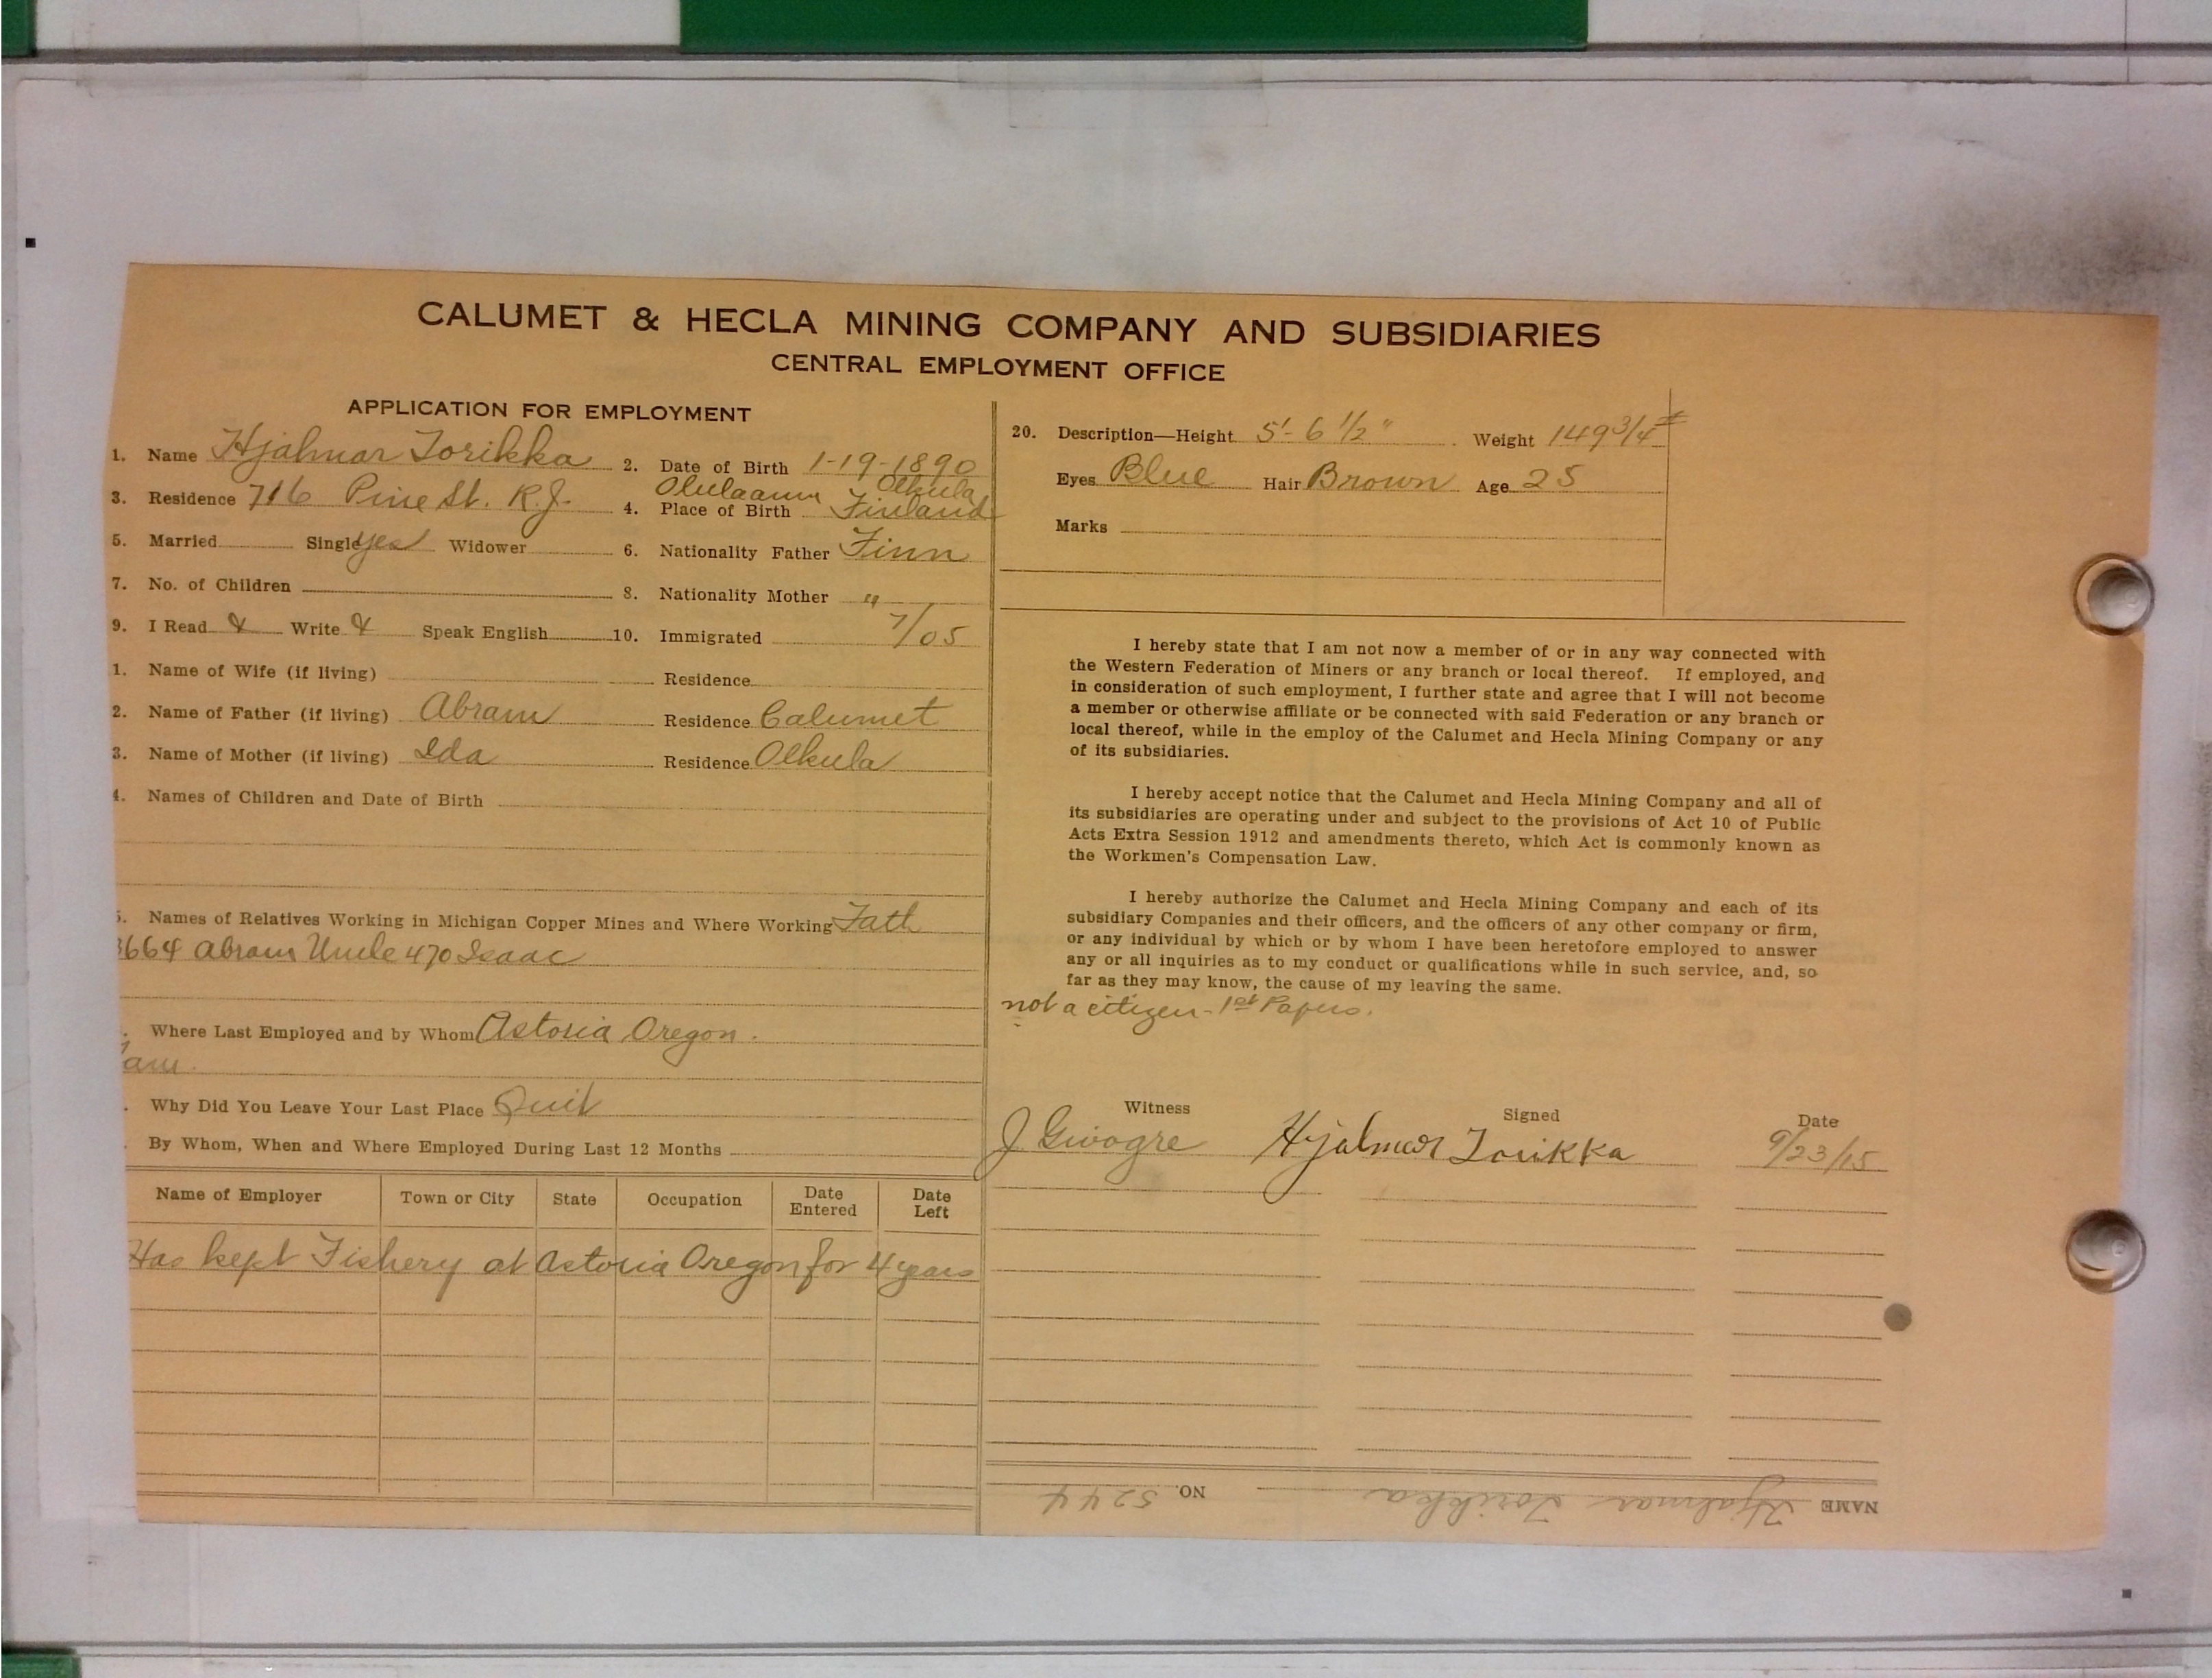 CALUMET & HECLA MINING COMPANY AND SUBSIDIARIES
CENTRAL EMPLOYMENT OFFICE
APPLICATION FOR EMPLOYMENT
1. Name Hjalmar Torikka 2. Date of Birth 1-19-1890
3. Residence 716 Pine St. R.J. 4. Place of Birth Olulaann Olkula Finland
5. Married Single yes Widower 6. Nationality Father Finn
7. No. of Children 8. Nationality Mother "
9. I Read & Write & Speak English 10. Immigrated 7/05
1. Name of Wife (if living) Residence
2. Name of Father (if living) Abram Residence Calumet
3. Name of Mother (if living) Ida Residence Olkula
4. Names of Children and Date of Birth
5. Names of Relatives Working in Michigan Copper Mines and Where Working Fath
3664 Abram Uncle 470 Isaac
. Where Last Employed and by Whom Astoria Oregon.
. Why Did You Leave Your Last Place Quit
. By Whom, When and Where Employed During Last 12 Months
Name of Employer Town or City State Occupation Date Entered Date Left
Has kept Fishery at Astoria Oregon for 4 years
20. Description—Height 5'-6 1/2" Weight 149 3/4 #
Eyes Blue Hair Brown Age 25
Marks
I hereby state that I am not now a member of or in any way connected with
the Western Federation of Miners or any branch or local thereof. If employed, and
in consideration of such employment, I further state and agree that I will not become
a member or otherwise affiliate or be connected with said Federation or any branch or
local thereof, while in the employ of the Calumet and Hecla Mining Company or any
of its subsidiaries.
I hereby accept notice that the Calumet and Hecla Mining Company and all of
its subsidiaries are operating under and subject to the provisions of Act 10 of Public
Acts Extra Session 1912 and amendments thereto, which Act is commonly known as
the Workmen's Compensation Law.
I hereby authorize the Calumet and Hecla Mining Company and each of its
subsidiary Companies and their officers, and the officers of any other company or firm,
or any individual by which or by whom I have been heretofore employed to answer
any or all inquiries as to my conduct or qualifications while in such service, and, so
far as they may know, the cause of my leaving the same.
not a citizen - 1st Papers.
Witness Signed Date
J Hjalmar Torikka 9/23/15
NAME Hjalmar Torikka NO. 5244